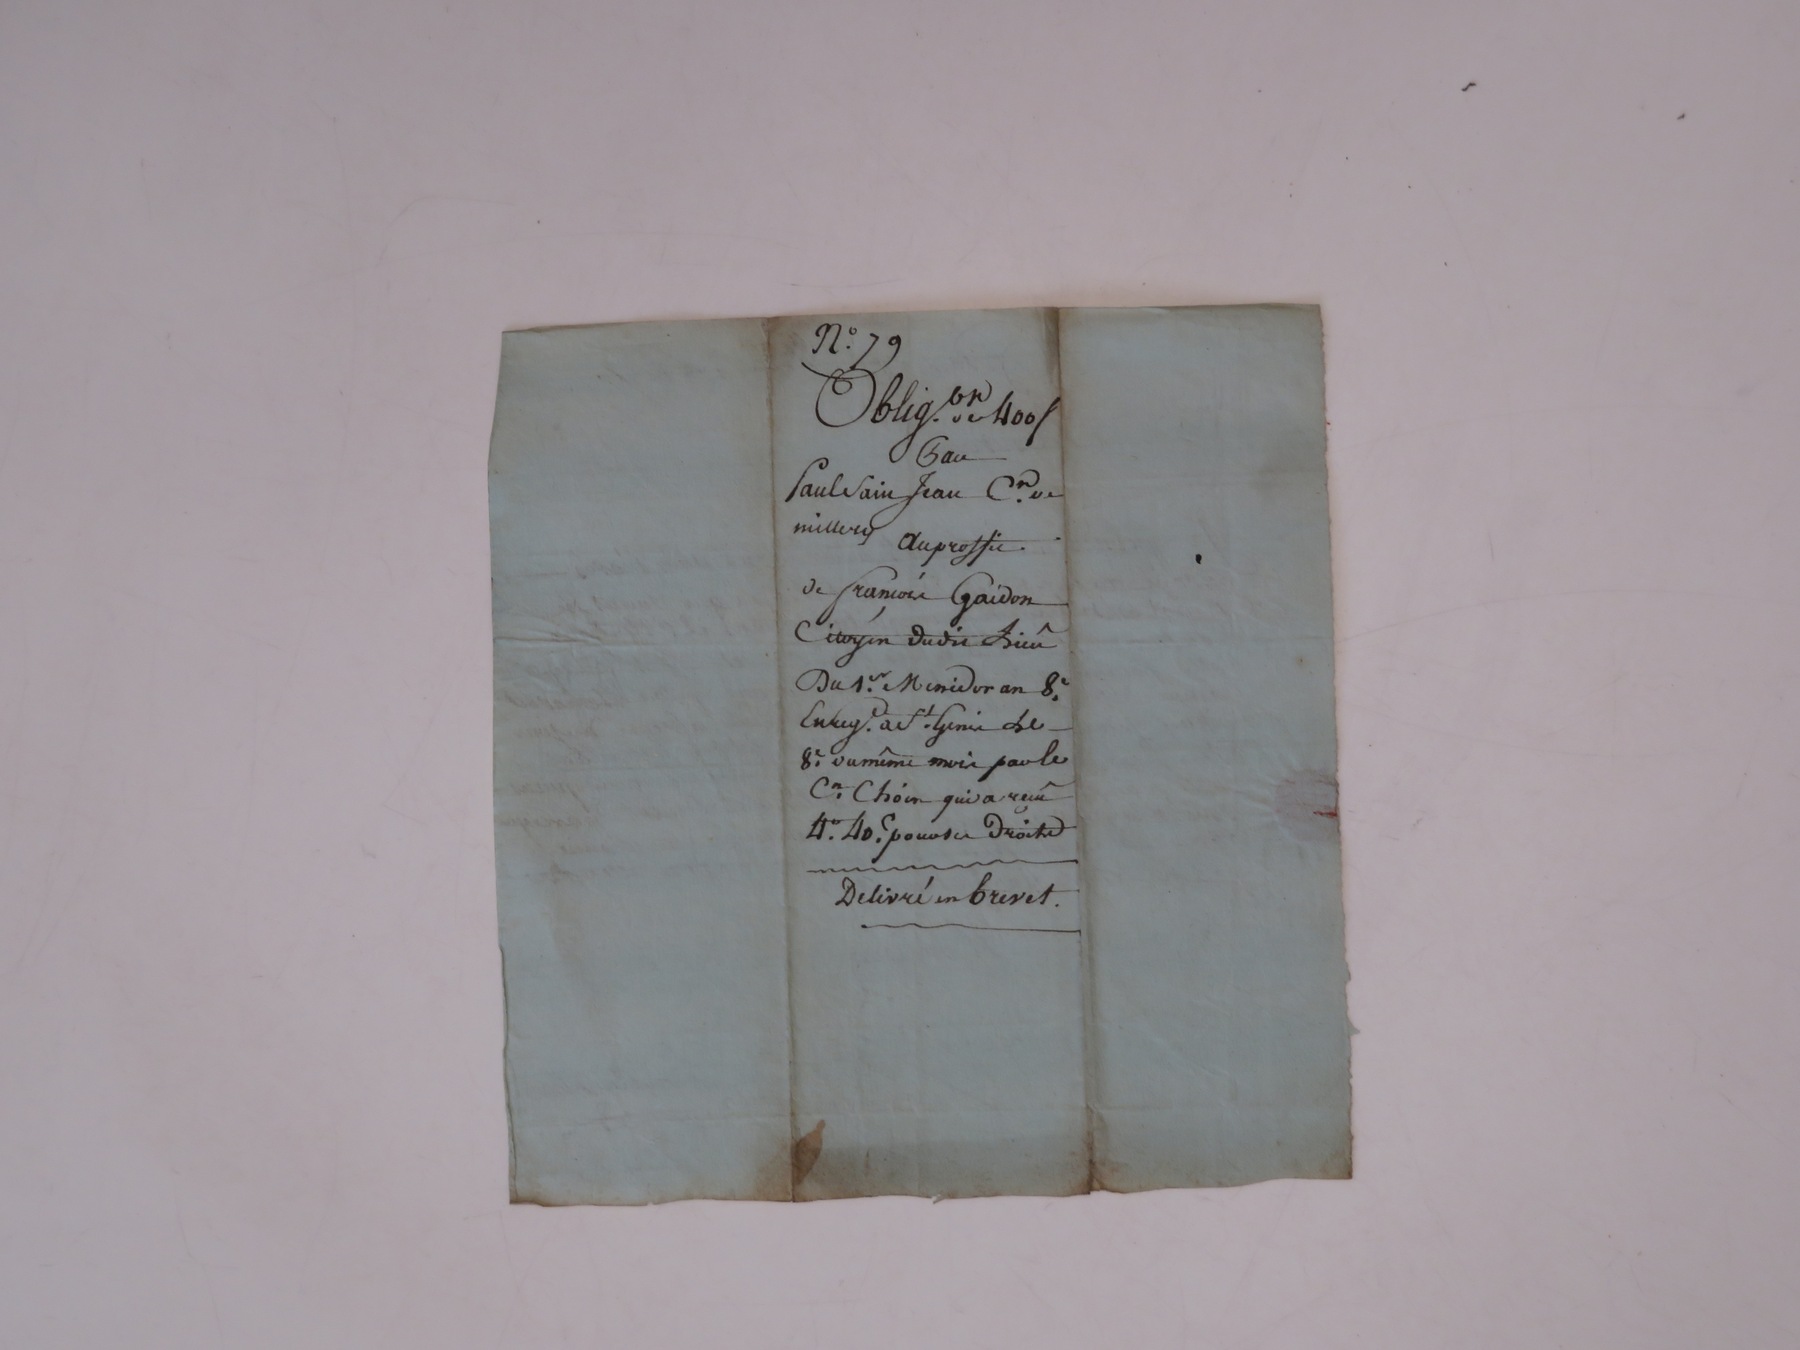 N.º 79
Oblig.on de 400f
Par
Paul Sain Jean C.n de
millery
au proffit
de François Gaidon
Citoyen dudit Lieu
Du 1.er Messidor an 8.e
Enreg.é a St. Genis Le
8.e du même mois par le
C.n Choin qui a reçu
4.f 40.c pour ses Droits
Delivré en brevet.